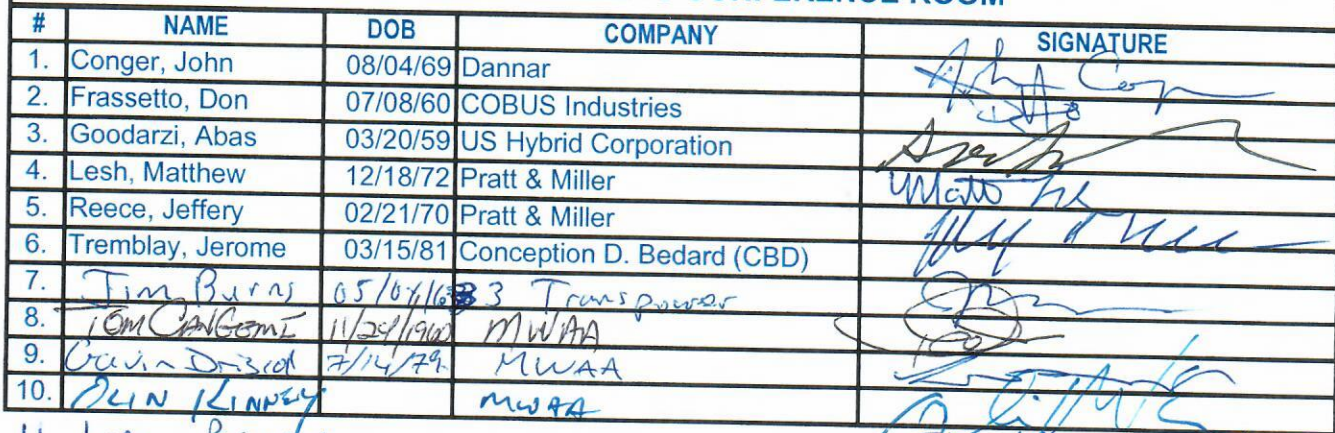 CONFERENCE ROOM
# NAME DOB COMPANY SIGNATURE
1. Conger, John 08/04/69 Dannar
2. Frassetto, Don 07/08/60 COBUS Industries
3. Goodarzi, Abas 03/20/59 US Hybrid Corporation
4. Lesh, Matthew 12/18/72 Pratt & Miller
5. Reece, Jeffery 02/21/70 Pratt & Miller
6. Tremblay, Jerome 03/15/81 Conception D. Bedard (CBD)
7. Jim Burns Transpower
8. Tom CANGEMI MWAA
9. Gavin 7/14/79 MWAA
10. KINNEY MWAA